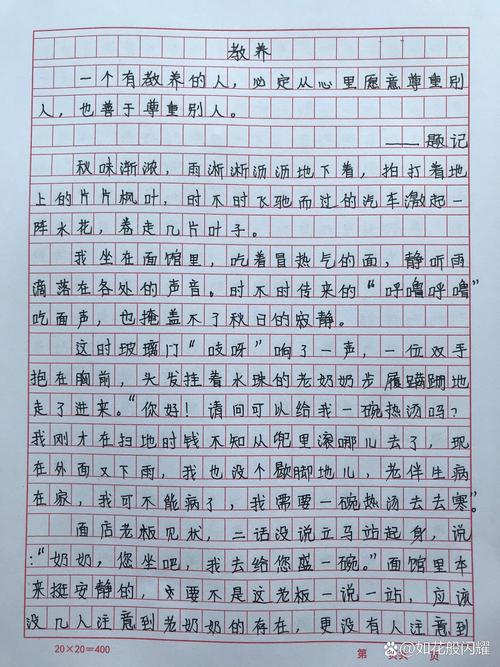 教养
一个有教养的人，必定从心里愿意尊重别
人，也善于尊重别人。
——题记
秋味渐浓，雨淅淅沥沥地下着，拍打着地
上的片片枫叶，时不时飞驰而过的汽车激起一
阵水花，卷走几片叶子。
我坐在面馆里，吃着冒热气的面，静听雨
滴落在各处的声音。时不时传来的“呼噜呼噜”
吃面声，也掩盖不了秋日的寂静。
这时玻璃门“吱呀”响了一声，一位双手
抱在胸前，头发挂着水珠的老奶奶步履蹒跚地
走了进来。“你好！请问可以给我一碗热汤吗？
我刚才在扫地时钱不知从兜里滚哪儿去了，现
在外面又下雨，我也没个歇脚地儿，老伴生病
在家，我可不能病了，我需要一碗热汤去去寒。”
面店老板见状，二话没说立马站起身，说
：“奶奶，您坐吧，我去给您盛一碗。”面馆里本
来挺安静的，要不是这老板一说一站，应该
没几人注意到老奶奶的存在，更没有人注意到
20×20=400
第 页共 页
@如花般闪耀